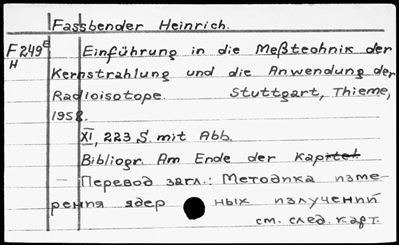 Fassbender Heinrich.
F249E Einführung in die Meßtechnik der
H Kernstrahlung und die Anwendung der
Radioisotope. Stuttgart, Thieme,
1958.
XI, 223 S. mit Abb.
Bibliogr. Am Ende der Kapitel
– Перевод загл.: Методика изме-
рения ядерных излучений
см. след. карт.